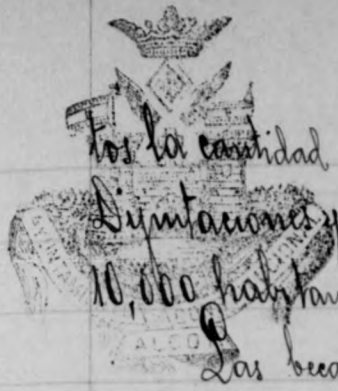 tos la cantidad
Diputaciones y
10,000 habitan
Las beca
ALCOY